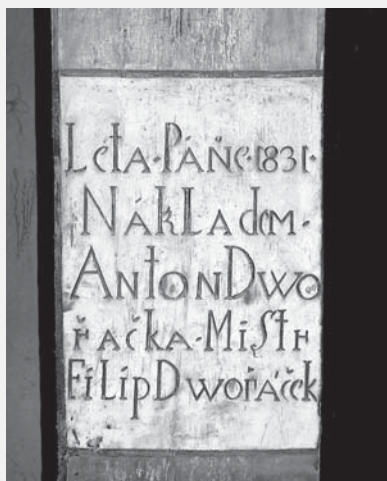 Léta·Páňe·1831·
NákLadem·
AntonDwo
řačka·Mistr
FiLipDwořáček